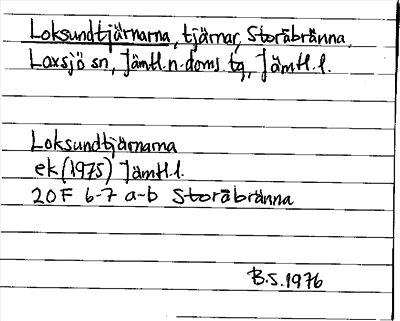 Loksundtjärnarna, tjärnar, Storåbränna,
Laxsjö sn, Jämtl. n. doms. tg, Jämtl. l.
Loksundtjärnarna
ek (1975) Jämtl. l.
20 F 6-7 a-b Storåbränna
B.S. 1976